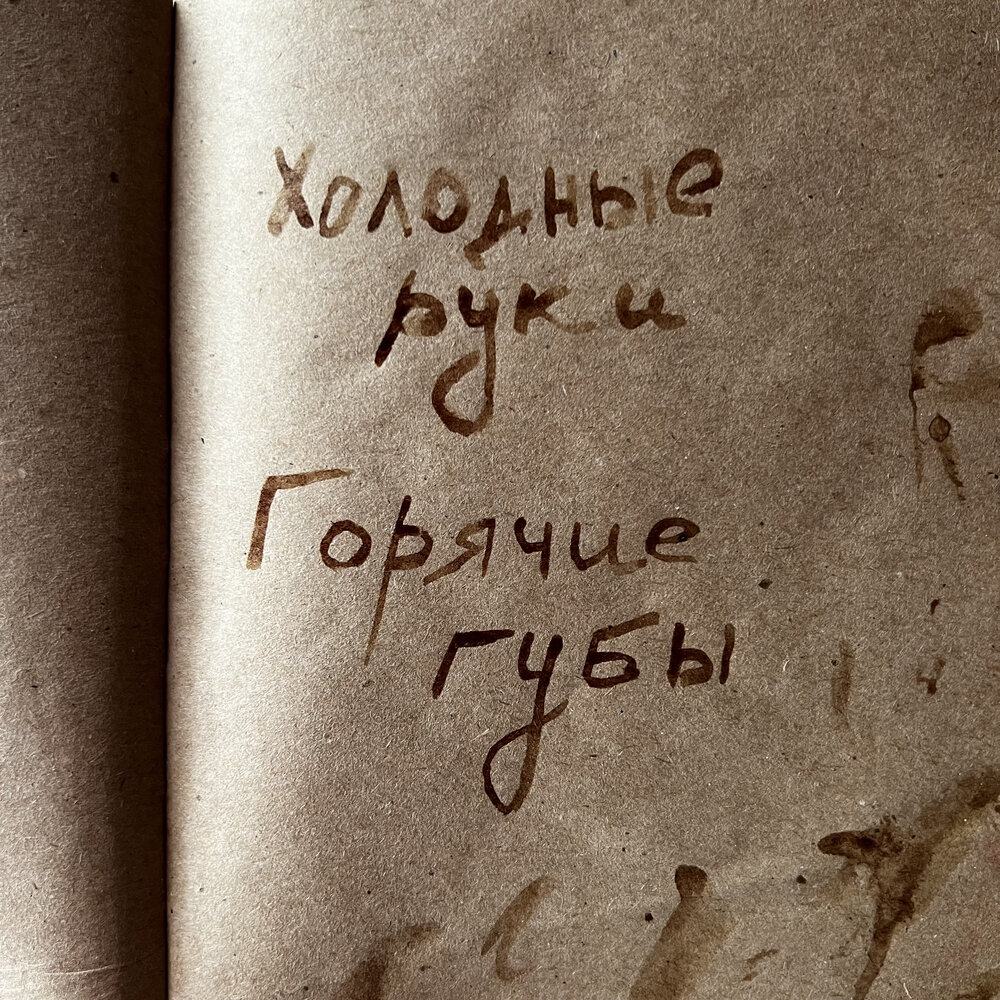 Холодные
руки
Горячие
губы